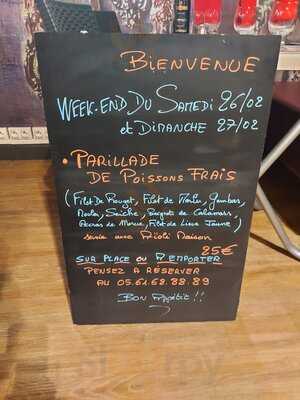 BIENVENUE
WEEK-END DU SAMEDI 26/02
et DIMANCHE 27/02
• PARILLADE
DE POISSONS FRAIS
(Filet De Rouget, Filet de Merlu, Gambas,
Moules, Seiche, Beignets de Calamars,
Accras de Morue, Filet de Lieu Jaune)
servie avec Aïoli Maison
25€
SUR PLACE OU À EMPORTER
PENSEZ A RÉSERVER
AU 05.61.68.88.89
BON Appétit !!